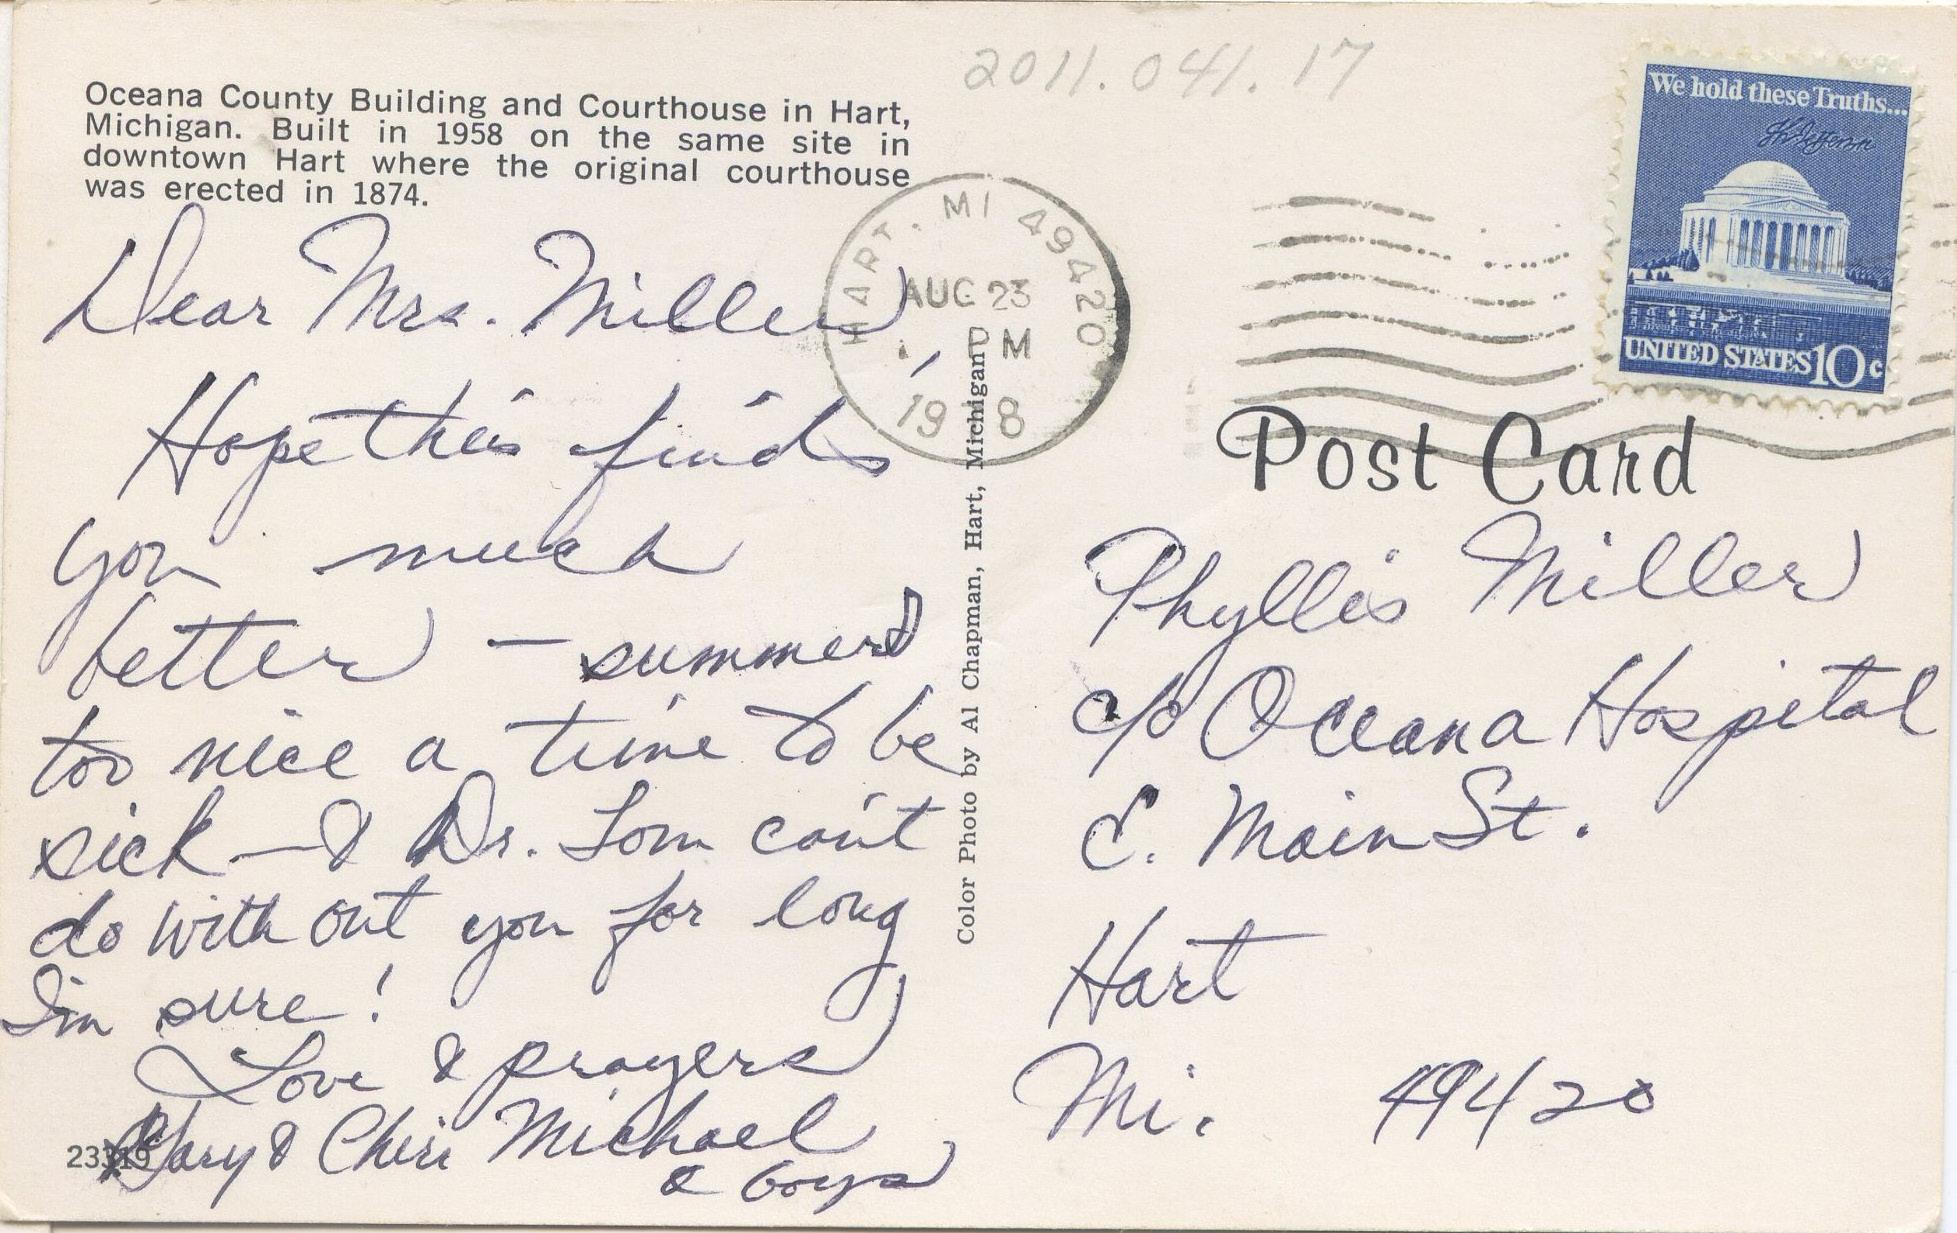 2011.041.17
Oceana County Building and Courthouse in Hart,
Michigan. Built in 1958 on the same site in
downtown Hart where the original courthouse
was erected in 1874.
Dear Mrs. Miller,
Hope this finds
you much
better — summers
too nice a time to be
sick — & Dr. Lom can't
do with out you for long
I'm sure!
Love & prayers
Gary & Cheri Michael
& boys
23319
Color Photo by Al Chapman, Hart, Michigan
HART, MI 49420
AUG 23
PM
19 8
We hold these Truths...
Th Jefferson
UNITED STATES 10c
Post Card
Phyllis Miller
c/o Oceana Hospital
E. Main St.
Hart
Mi. 49420